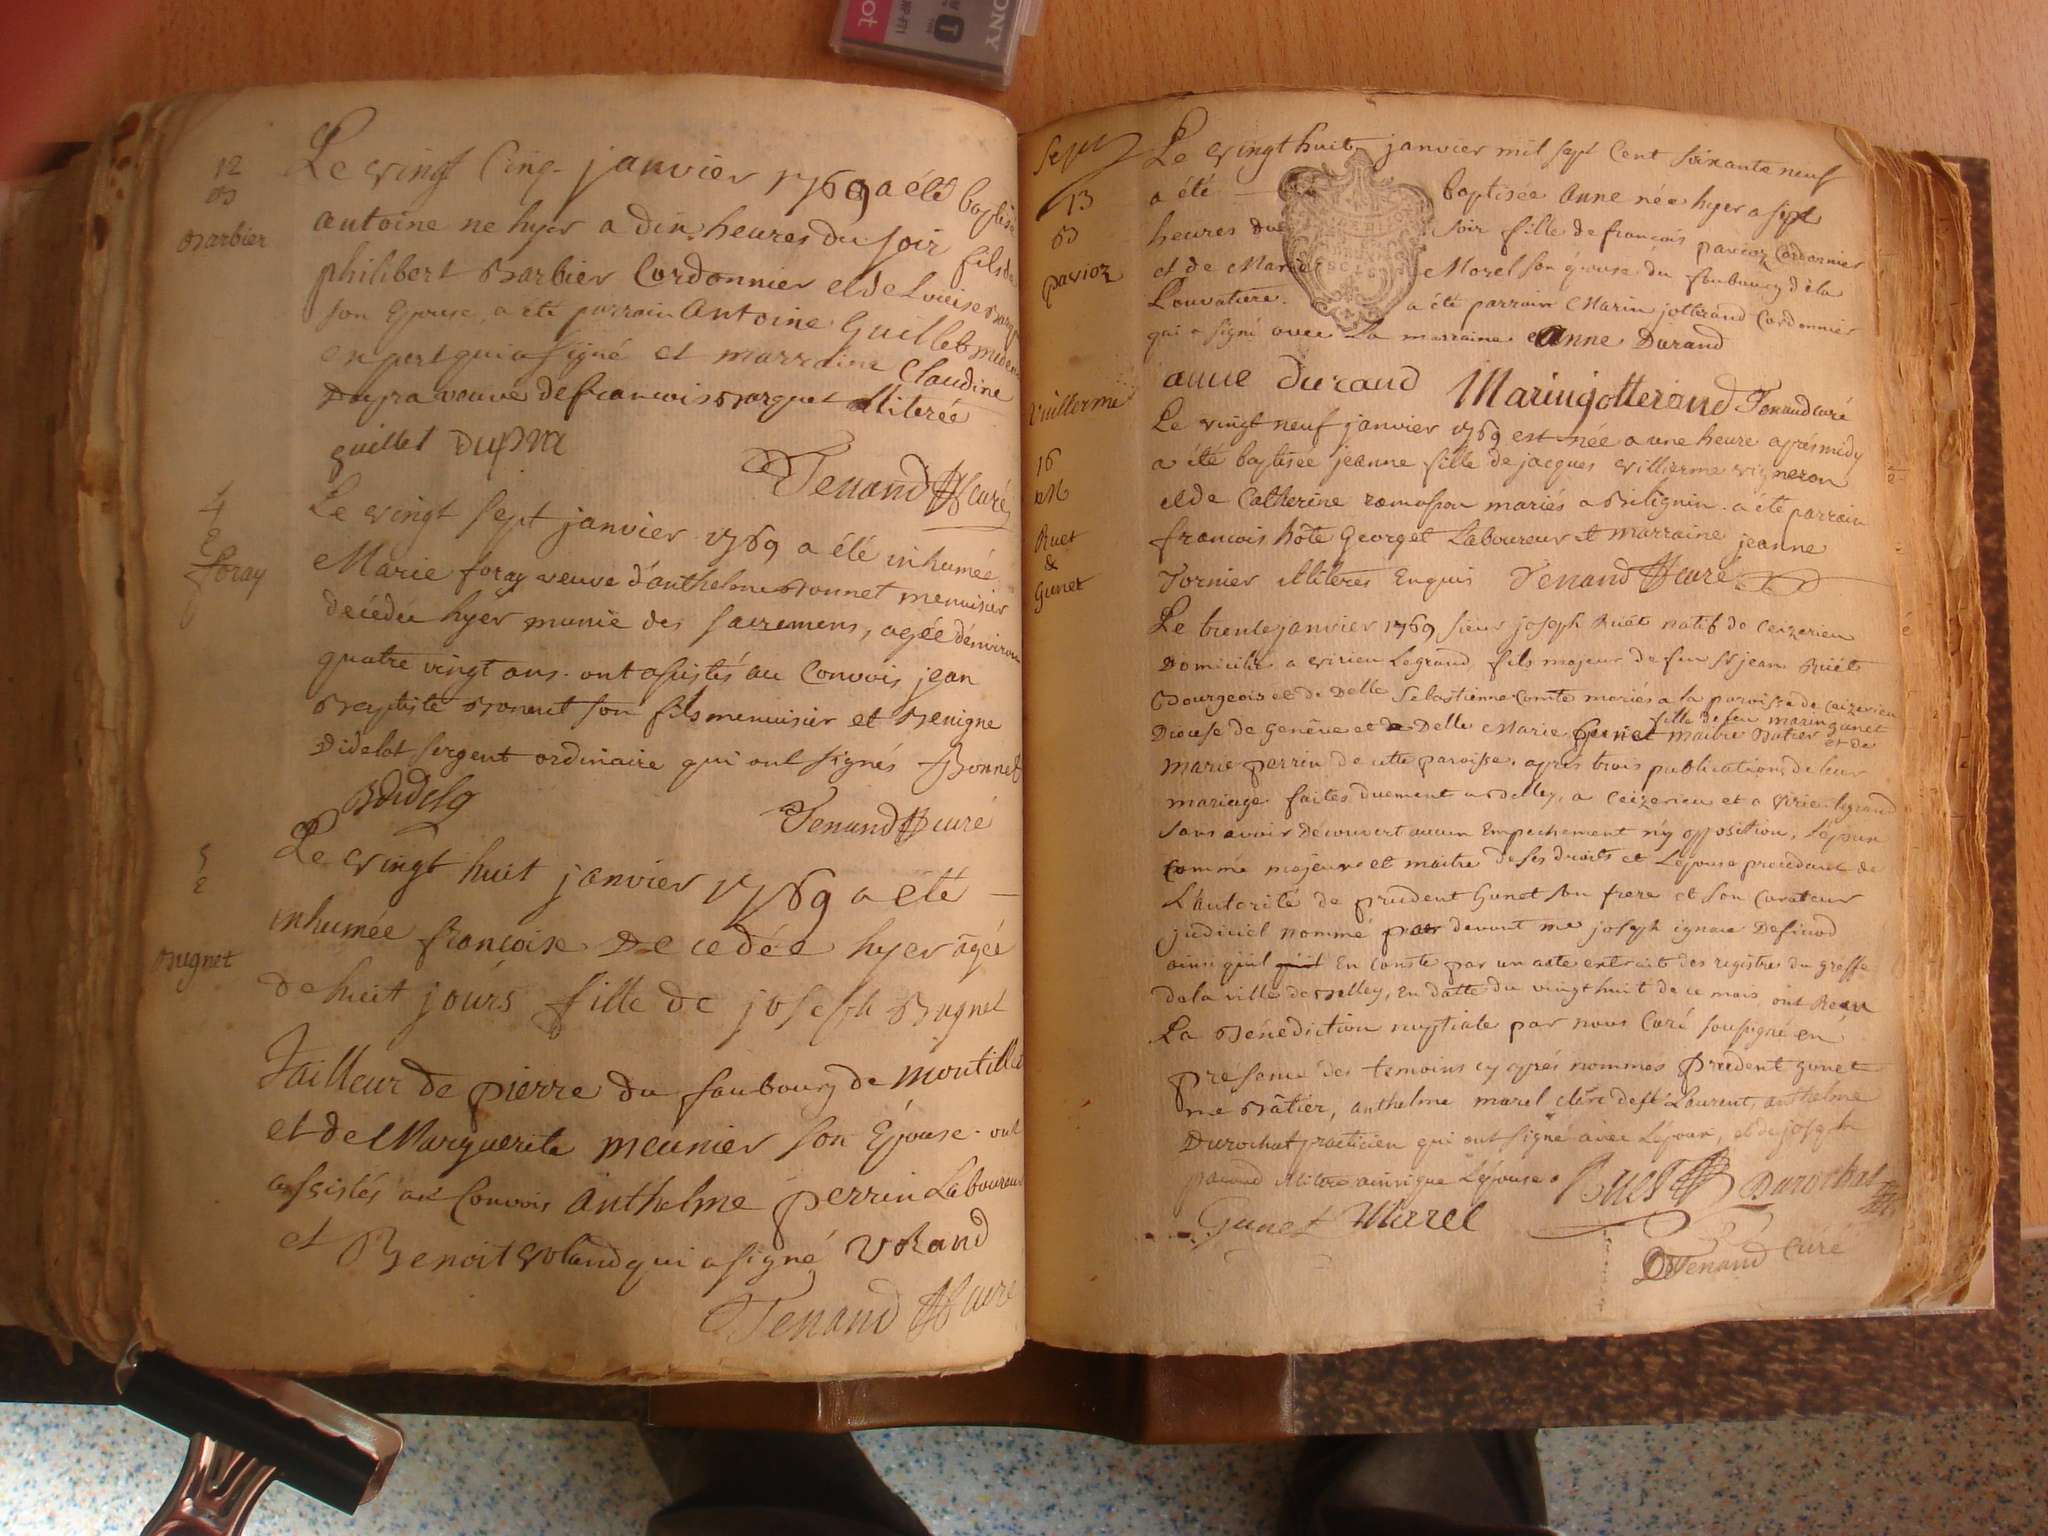 12
B
Barbier
Le vingt cinq janvier 1769 a été baptisé
antoine ne hyer a dix heures du soir fils de
philibert Barbier Cordonnier et de Lovise
son Epouse, a été parrain Antoine Guillet
en pert qui a signé et marraine Claudine
Dupra veuve de francois Borgnet illiterée
guillet Dupra
Tenand curé
4
E
foray
Le vingt sept janvier 1769 a été inhumée
Marie foray veuve d'anthelme Bonnet menuisier
decédée hyer munie des sacremens, agée d'environ
quatre vingt ans. ont assistés au Convois jean
Baptiste Bonnet son fils menuisier et Benigne
Didelot sergent ordinaire qui ont signés Bonnet
Tenand curé
5
E
Bugnet
Le vingt huit janvier 1769 a été
inhumée françoise Decedée hyer agée
de huit jours fille de joseph Bugnet
Tailleur de pierre du faubourg de montillet
et de Marguerite meunier son Epouse. ont
assistés au Convois anthelme perrin Laboureur
et Benoit voland qui a signé Voland
Tenand curé
Sept
13
B
pavioz
Le vingt huit janvier mil sept Cent soixante neuf
a été baptisée anne née hyer a sept
heures du soir fille de francois pavioz Cordonnier
et de Marie Morel son épouse du faubourg de la
Louvatiere. a été parrain Marin jotterand Cordonnier
qui a signé avec La marraine Anne Durand
anne durand Marin jotterand Tenand curé
Vuillerme
Le vingt neuf janvier 1769 est née a une heure après midy
a été baptisée jeanne fille de jacques villierme vigneron
et de Catherine ramasson mariés a Bilignin. a été parrain
francois hôte Georget Laboureur et marraine jeanne
Tornier illiteres Enquis Tenand curé
16
M
Ruet
&
Gunet
Le trente janvier 1769 sieur joseph Ruet natif de Ceizerieu
Domicilié a virieu Legrand fils majeur de feu Sr jean Ruët
Bourgeois et de Delle Sebastienne Comte mariés a la paroisse de Ceizerieu
fille de feu marin gunet
Diocese de genève et de Delle Marie Gunet maitre Batier et de
Marie perrin de cette paroisse. après trois publications de leur
mariage faites duement a Belley, a Ceizerieu et a virieu legrand
sans avoir découvert aucun Empechement n'y opposition, L'époux
Comme majeur et maitre de ses droits et L'épouse procedant de
L'autorité de prudent Gunet son frere et son Curateur
judiciel nommé par devant me joseph ignace Definod
ainsi qu'il qu'il En conste par un acte extrait des registres du greffe
de la ville de Belley, En datte du vingt huit de ce mois ont Reçu
La Bénédiction nuptiale par nous Curé soussigné en
présence des temoins cy après nommés Prudent gunet
me Bâtier, anthelme marel clerc de St Laurent, anthelme
Durochat practicien qui ont signé avec L'époux, et de joseph
illitere ainsi que L'épouse. Ruet Durochat
Gunet Marel
Tenand Curé
SONY